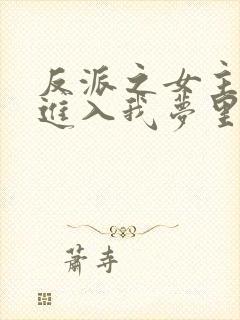 反派之女主
進入我夢里
蕭寺